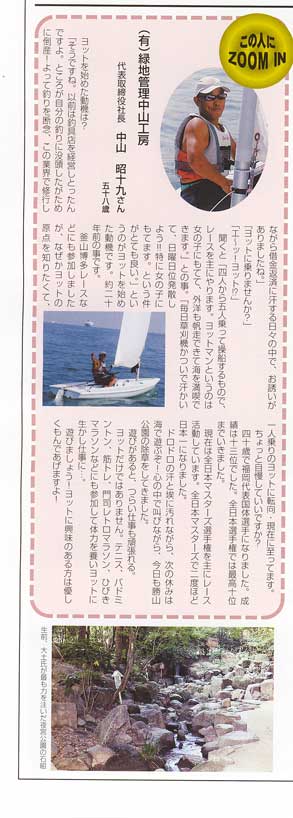 この人に
ZOOM IN
(有)緑地管理中山工房
代表取締役社長 中山 昭十九さん
五十八歳
ヨットを始めた動機は?
「そうですね。以前は釣具店を経営しとったん
ですよ。ところが自分の釣りに没頭したがため
に倒産!よって釣りを断念、この業界で修行し
ながら借金返済に汗する日々の中で、お誘いが
ありましたね。」
「ヨットに乗りませんか?」
「エーッ…ヨット?」
聞くと「四人から五人乗って操船するもので、
レースを主にやります。ヨットマンというのは
女の子にもてて、外洋も帆走できて海を満喫で
きます。」との事。「毎日草刈機かついで汗かい
て、日曜日位発散し
よう!!特に女の子に
もてます。という件
がとても良い。」とい
うのがヨットを始め
た動機です。約二十
年前の事です。
釜山博多レースな
どにも参加しました
が、なぜかヨットの
原点を知りたくて、
一人乗りのヨットに転向、現在に至ってます。
ちょっと自慢していいですか?
四十歳で福岡代表国体選手になりました。成
績は十三位でした。全日本選手権では最高十位
までいきました。
現在は全日本マスターズ選手権を主にレース
活動しています。全日本マスターズで二度ほど
日本一になりました。
ドロドロの汗と埃に汚れながら、次の休みは
海で遊ぶぞ!心の中で叫びながら、今日も勝山
公園の除草をしてきました。
遊びがあると、つらい仕事も頑張れる。
ヨットだけではありません。テニス、バドミ
ントン、筋トレ、門司レトロマラソン、ひびき
マラソンなどにも参加して体力を養いヨットに
生かし仕事に…。
遊びましょう!ヨットに興味のある方は優し
くもんであげますよ!
生前、大士氏が最も力を注いだ夜宮公園の石組